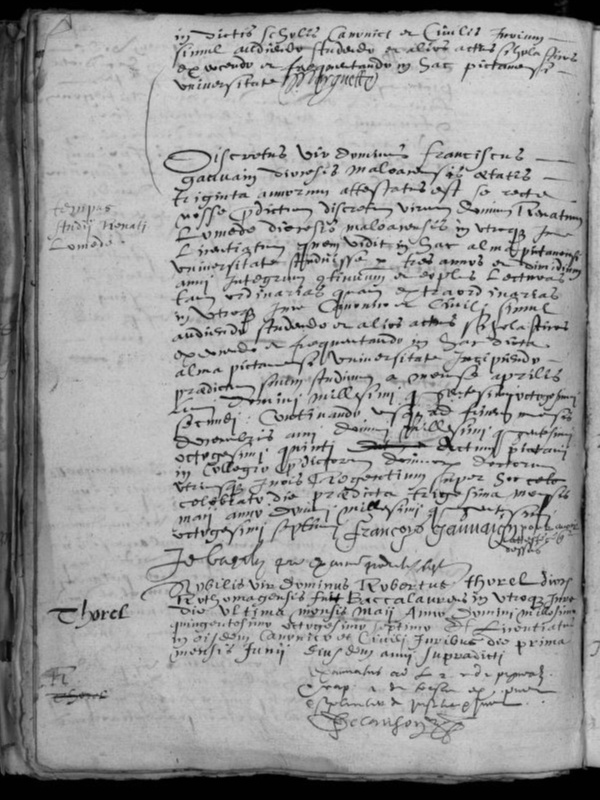 in dictis scholis Canonici et Civilis Jurium
simul audiendo studendo et alios actus scholasticos
exercendo et frequentando in hac pictavensi
universitate
Discretus vir dominus Franciscus
gauvain diocesis maloacensis etatis
triginta annorum attestatus est se recte
nosse predictum discretum virum dominum Renatum
Lomede diocesis maloacensis in utroque Jure
Licentiatum quem vidit in hac alma pictavensi
universitate studuisse per tres annos et dimidium
anni Integrum continuum et complus Lectiones
tam ordinarias quam extraordinarias
in utroque Jure Canonico et Civili simul
audiendo studendo et alios actus scholasticos
exercendo et frequentando in hac dicta
alma pictavensi universitate Incipiendo
predictum suum studium a mense aprilis
anni domini millesimi quingentesimi octogesimi
secundi Continuando usque ad finem mensis
decembris anni domini millesimi quingentesimi
octogesimi quinti Actum pictavii
in Collegio predictorum dominorum doctorum
utriusque Juris Regentium super hoc
celebrato die praedicta trigesima mensis
maii anno domini millesimi quingentesimi
octogesimi septimi François Gauvain
tempus
studii Renati
Lomede
Nobilis vir dominus Robertus Thorel dioces
Rothomagensis fuit Baccalaureus in utroque Jure
die ultima mensis Maii Anno Domini millesimo
quingentesimo octogesimo septimo Et Licentiatus
in eisdem Canonico et Civili Juribus die prima
mensis Junii Eiusdem anni supradicti
Thorel
Thorel